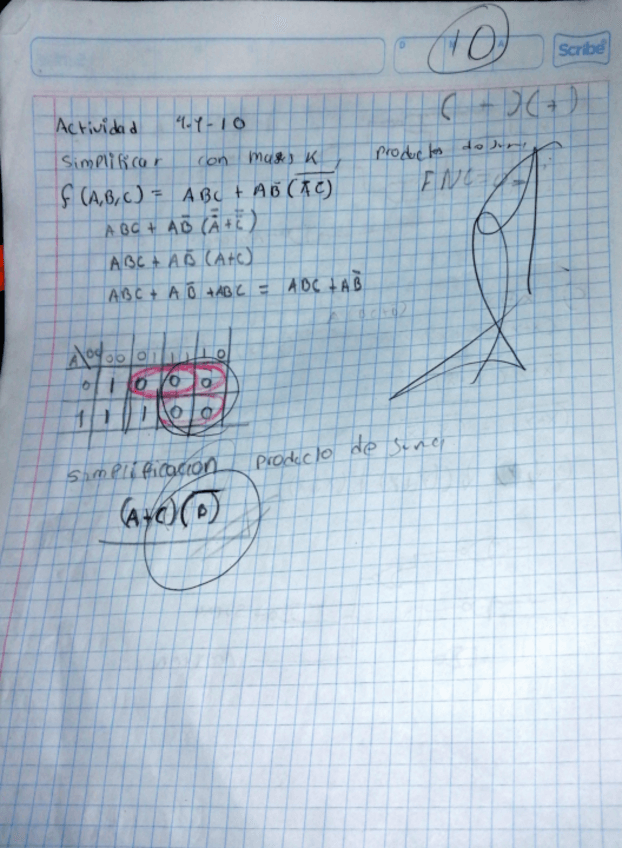 10
Scribe
( + )(+)
Actividad 4-4-10
Simplificar con mapas K, producto de sum
f(A,B,C) = ABC + AB̅(A̅C̅)
ABC + AB̅ (A̿+C̿)
ABC + AB̅ (A+C)
ABC + AB̅ +ABC = ABC +AB̅
A 00 01 11 10
0 1 0 0 0
1 1 1 0 0
simplificacion producto de
(A+C)(B̅)